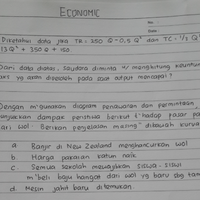 ECONOMIC
No.
Date
Diketahui data jasa TR = 350 Q - 0,9 Q² dan TC = 1/3 Q³
13 Q² + 350 Q + 150
Dari data diatas, Saudara diminta u/ menghitung keuntun
yang akan diperoleh pada saat output mencapai?
Dengan m'gunakan diagram penawaran dan permintaan
dampak peristiwa berikut t'hadap pasar
dari wol. Berikan penjelasan masing² dibawah kurva
a. Banjir di New Zealand menghancurkan wol
b. Harga pakaian katun naik.
c. Semua sekolah mewajibkan siswa-siswi
m'beli baju hangat dari wol yg baru sbg
d. Mesin jahit baru ditemukan.